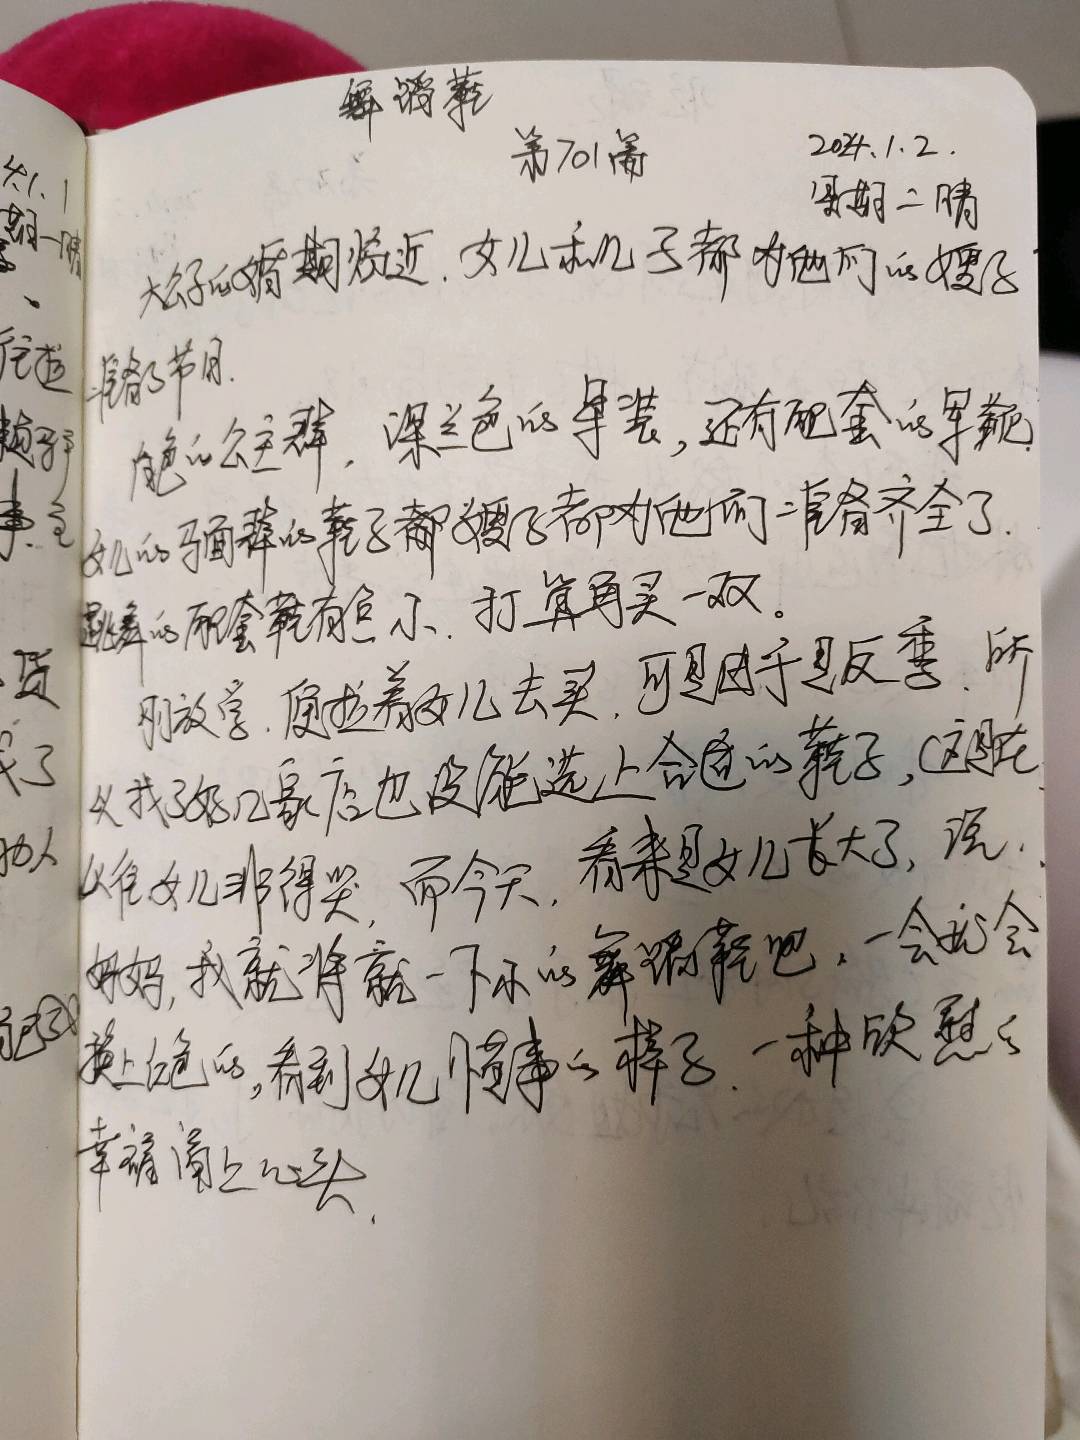 舞蹈鞋
第701篇
2024.1.2.
星期二 晴
大公子的婚期将近.女儿和儿子都为他们的嫂子
准备了节目.
白色的公主群,深兰色的军装,还有配套的军靴.
女儿的马面群的鞋子都嫂子都为他们准备齐全了.
跳舞的配套鞋有点小.打算再买一双。
刚放学.便拉着女儿去买.可是因于是反季.所
以找了好几家店也没能选上合适的鞋子,(这是在
以往女儿非得哭,而今天.看来是女儿长大了,说.
妈妈,我就将就一下小的舞蹈鞋吧.一会就会
换上白色的,看到女儿懂事的样子.一种欣慰的
幸福涌上心头.
4.1.1
期一晴
往拉
事
货
了
人